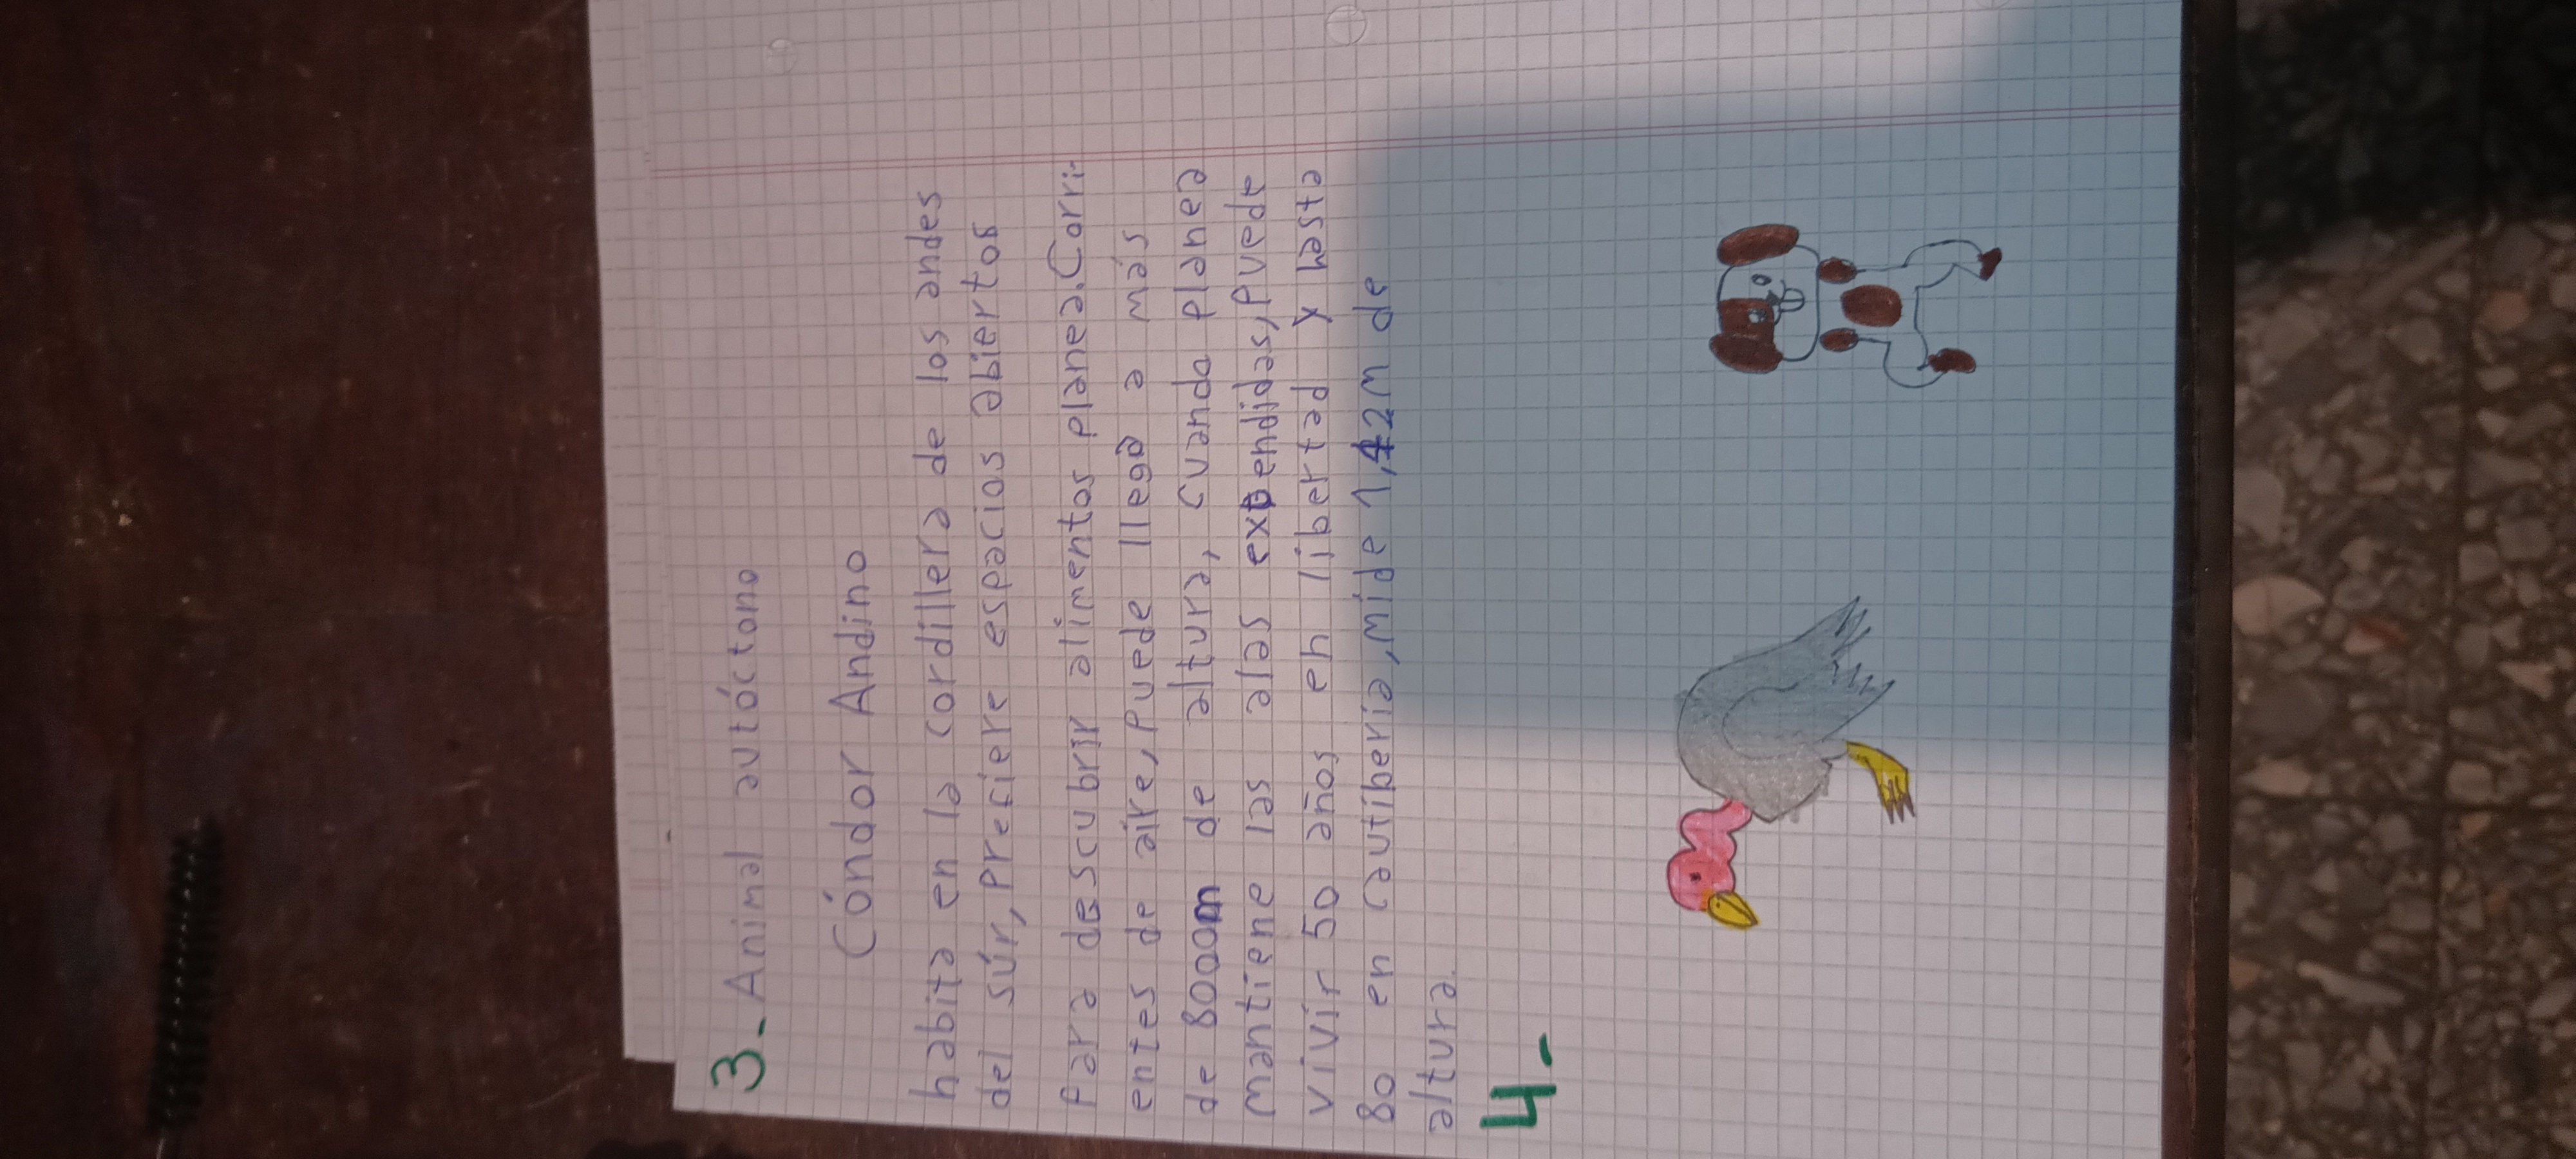 3_Animal autóctono
Cóndor Andino
habita en la cordillera de los andes
del súr, Prefiere espacios abiertos
Para descubrir alimentos planea. Corri-
entes de aire, Puede llega a más
de 8000m de altura, cuando planea
mantiene las alas extendidas, Puede
vivir 50 años en libertad y hasta
80 en cautibería, mide 1,42m de
altura.
4-